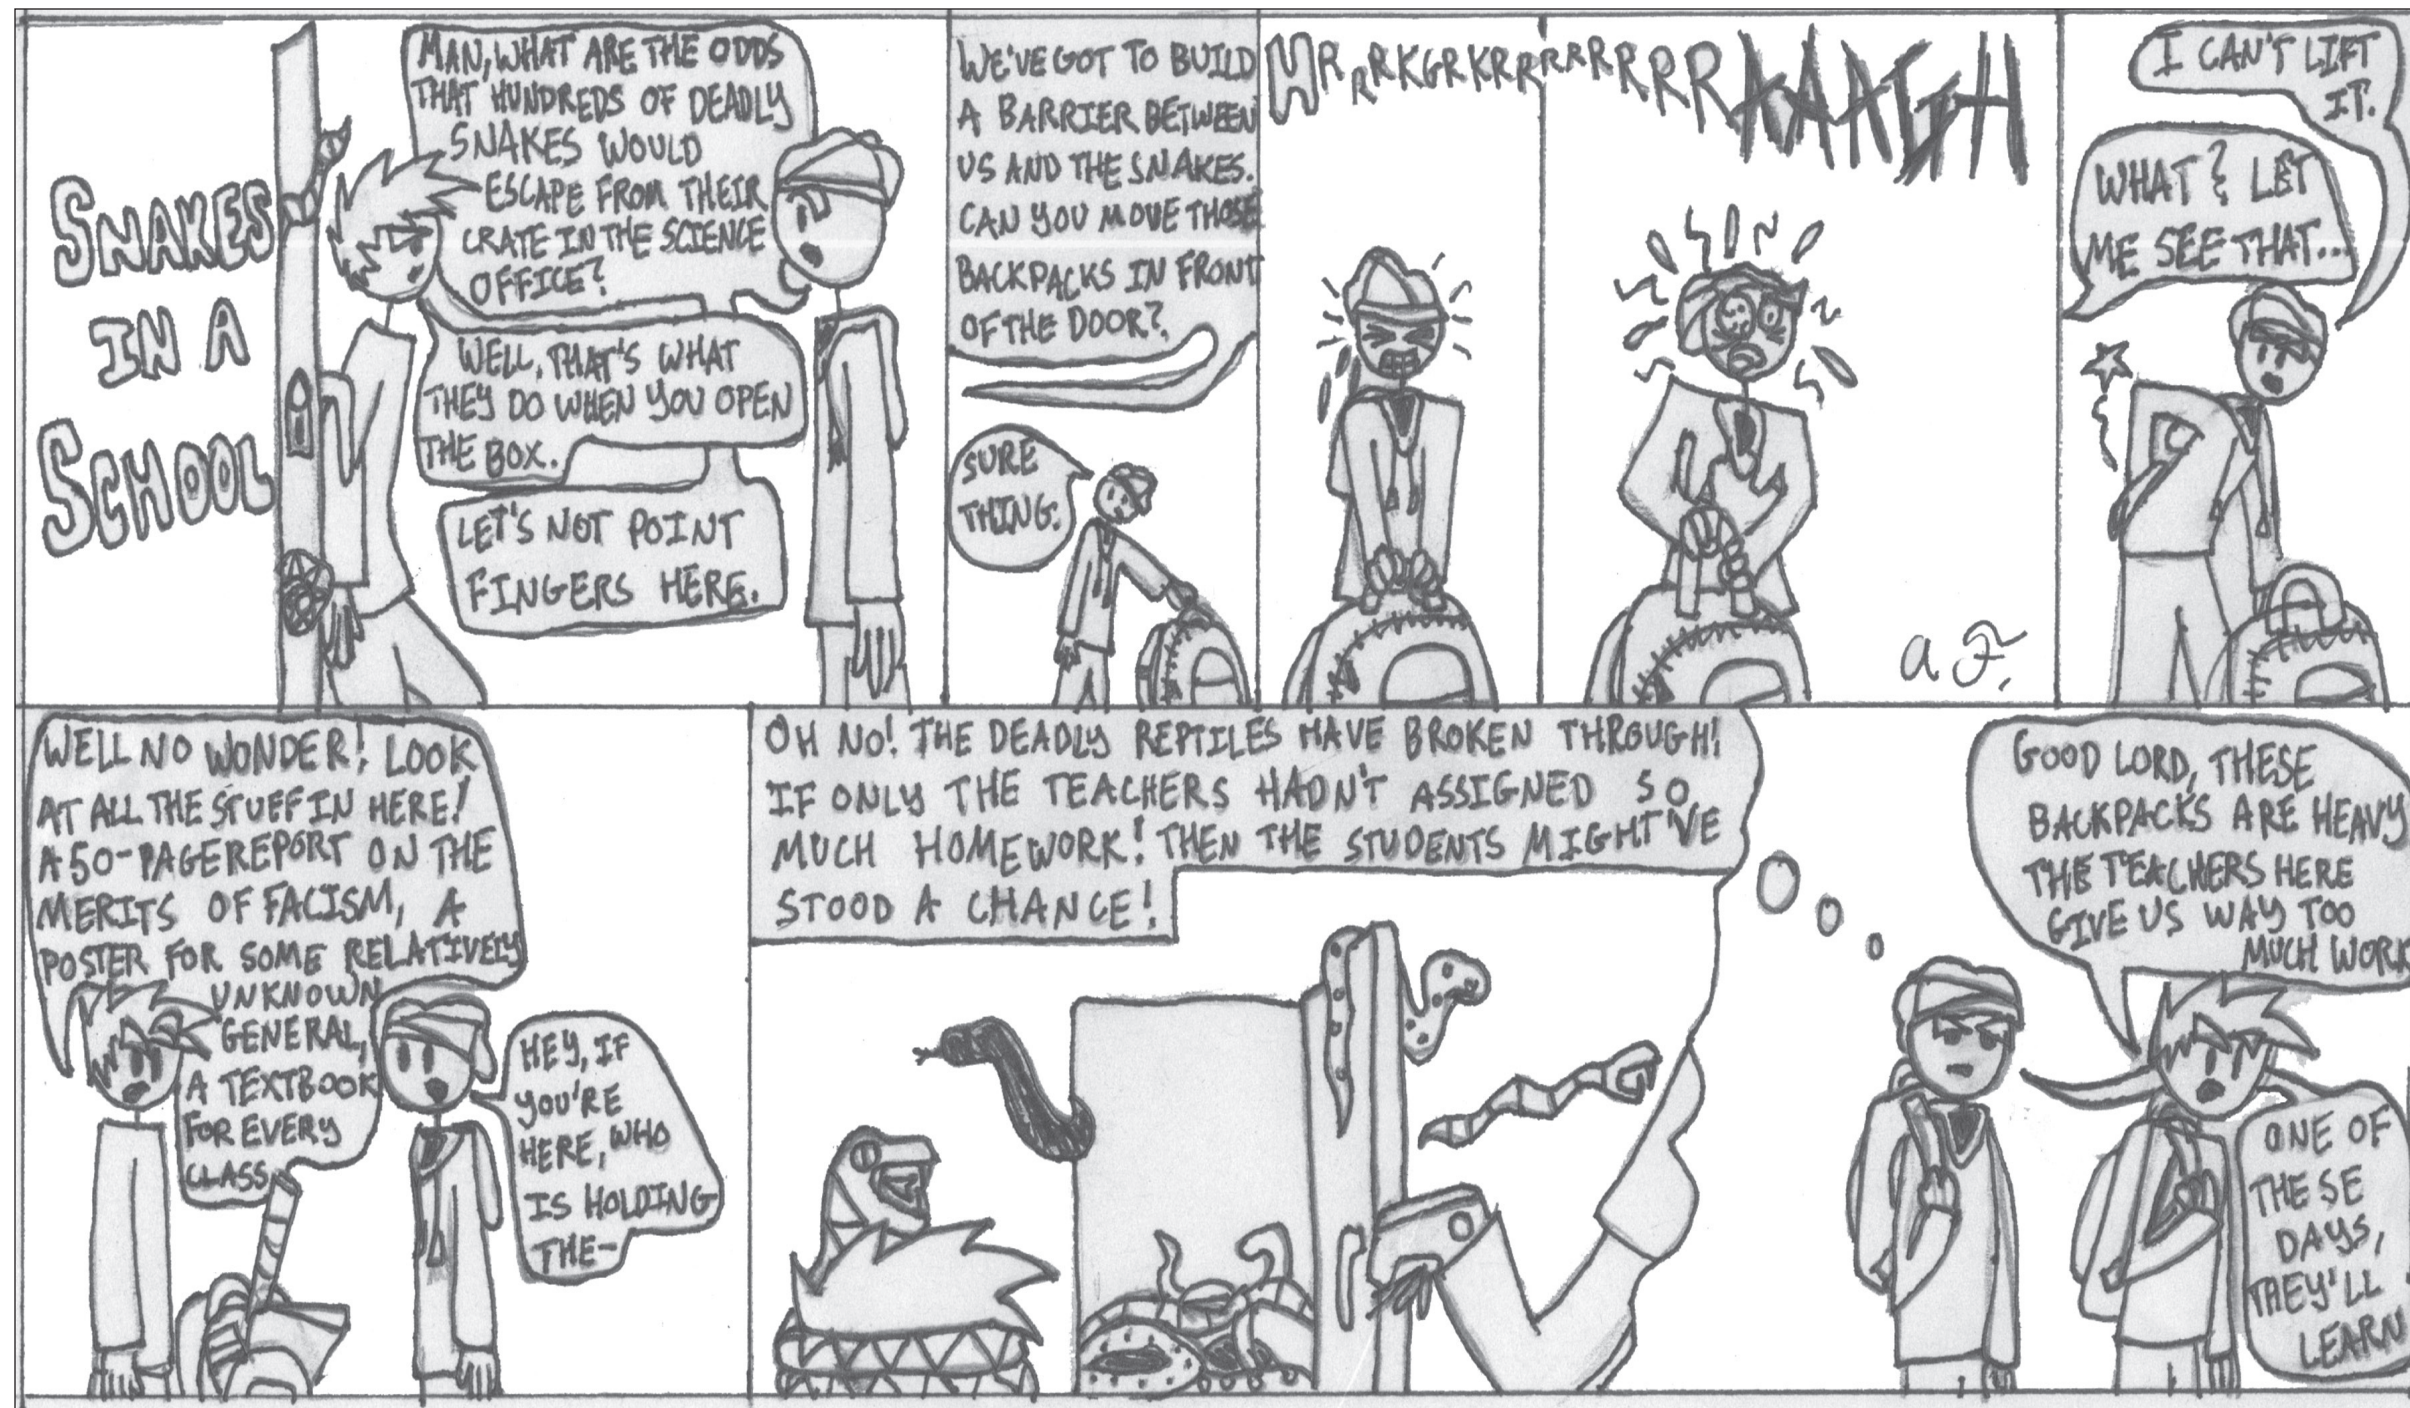 SNAKES
IN A
SCHOOL
MAN, WHAT ARE THE ODDS
THAT HUNDREDS OF DEADLY
SNAKES WOULD
ESCAPE FROM THEIR
CRATE IN THE SCIENCE
OFFICE?
WELL, THAT'S WHAT
THEY DO WHEN YOU OPEN
THE BOX.
LET'S NOT POINT
FINGERS HERE.
WE'VE GOT TO BUILD
A BARRIER BETWEEN
US AND THE SNAKES.
CAN YOU MOVE THOSE
BACKPACKS IN FRONT
OF THE DOOR?
SURE
THING.
HRRRKGRKRRRRRRRRRAAAGH
a F.
I CAN'T LIFT
IT.
WHAT? LET
ME SEE THAT...
WELL NO WONDER! LOOK
AT ALL THE STUFF IN HERE!
A 50-PAGE REPORT ON THE
MERITS OF FACISM, A
POSTER FOR SOME RELATIVELY
UNKNOWN
GENERAL,
A TEXTBOOK
FOR EVERY
CLASS
HEY, IF
YOU'RE
HERE, WHO
IS HOLDING
THE-
OH NO! THE DEADLY REPTILES HAVE BROKEN THROUGH!
IF ONLY THE TEACHERS HADN'T ASSIGNED SO
MUCH HOMEWORK! THEN THE STUDENTS MIGHT'VE
STOOD A CHANCE!
GOOD LORD, THESE
BACKPACKS ARE HEAVY
THE TEACHERS HERE
GIVE US WAY TOO
MUCH WORK
ONE OF
THESE
DAYS,
THEY'LL
LEARN